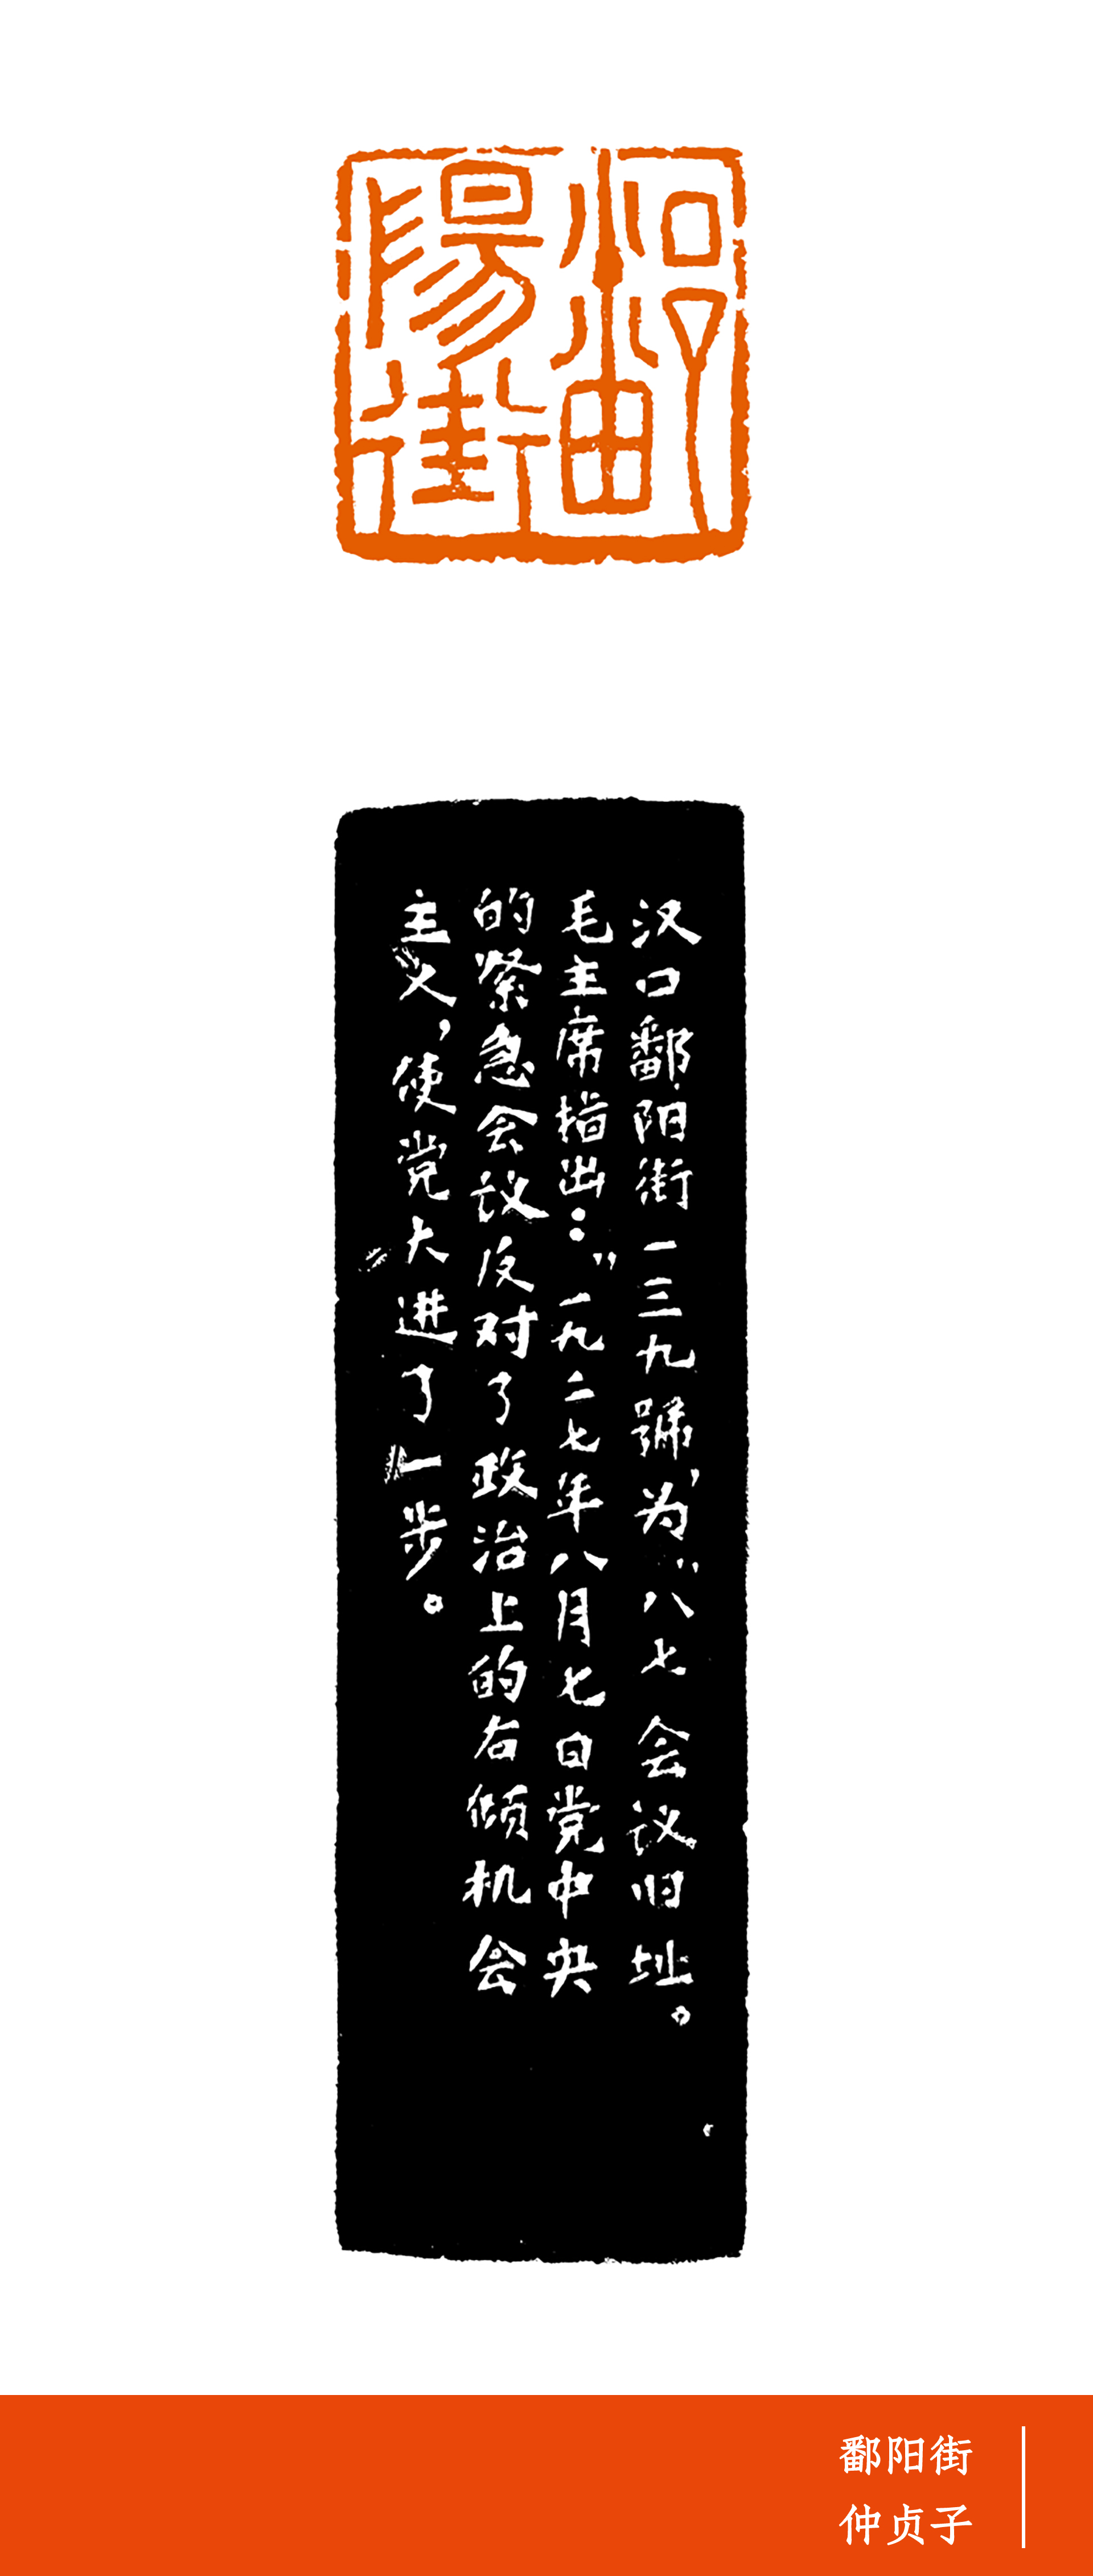 鄱
陽街
汉口鄱阳街一三九號,为"八七会议旧址。
毛主席指出:"一九二七年八月七日党中央
的紧急会议反对了政治上的右倾机会
主义,使党大进了一步。
鄱阳街
仲贞子